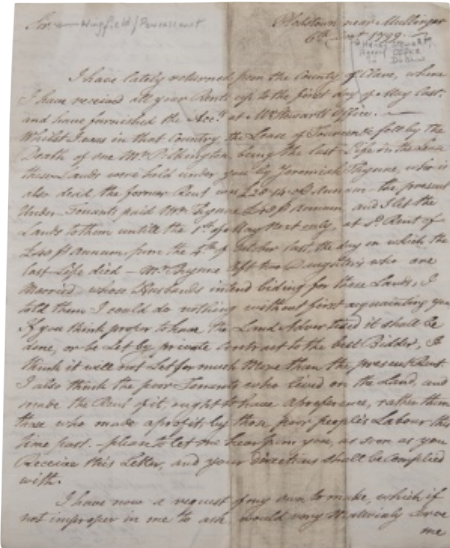 Sir, Wingfield / Powerscourt
near Mullingar
6th Sept 1799
Henry Stewart's
Office
in Dublin
I have lately returned from the County of Clare, where
I have received all your Rents up to the first day of May last,
and have furnished the Acct. at Mr Stewarts Office.
Whilst I was in that Country the Lease of fell by the
Death of one Mr Pilkington, being the last Life in the Lease
these Lands were held under you by Jeremiah Thynne, who is
also dead, the former Rent was Annum - the present
Under Tenants paid Mr Thynne Annum and I let the
Lands to them until the 1st of May next only, at Rent of
Annum from the 4th of October last, the day on which the
last Life died - Mr Thynne left two Daughters who are
Married whose Husbands intend biding for these Lands, I
told them I could do nothing without first acquainting you
If you think proper to have the Land Advertised it shall be
done, or be Let by private Contract to the best Bidder, I
think it will not Let for much More than the present Rent
I also think the poor Tenants who lived on the Land, and
made the Rent of it, ought to have a preference, rather than
those who made a profit by those poor people's Labour this
time past - please to let me hear from you, as soon as you
Receive this Letter, and your directions shall be complied
with.
I have now a request of my own to make, which if
not improper in me to ask, would very Materialy serve
me